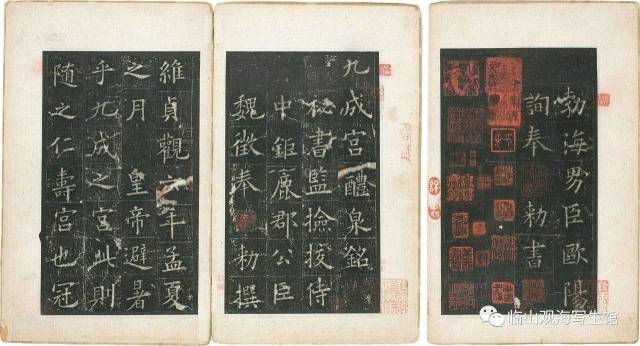 勃海男臣歐陽
詢奉 勅書
九成宮醴泉銘
秘書監撿挍侍
中鉅鹿郡公臣
魏徵奉 勅撰
維貞觀六年孟夏
之月 皇帝避暑
乎九成之宮此則
隨之仁壽宮也冠
临山观海写生馆